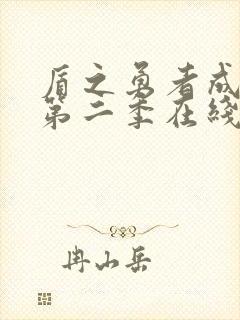 盾之勇者成
第二季在线
冉山岳